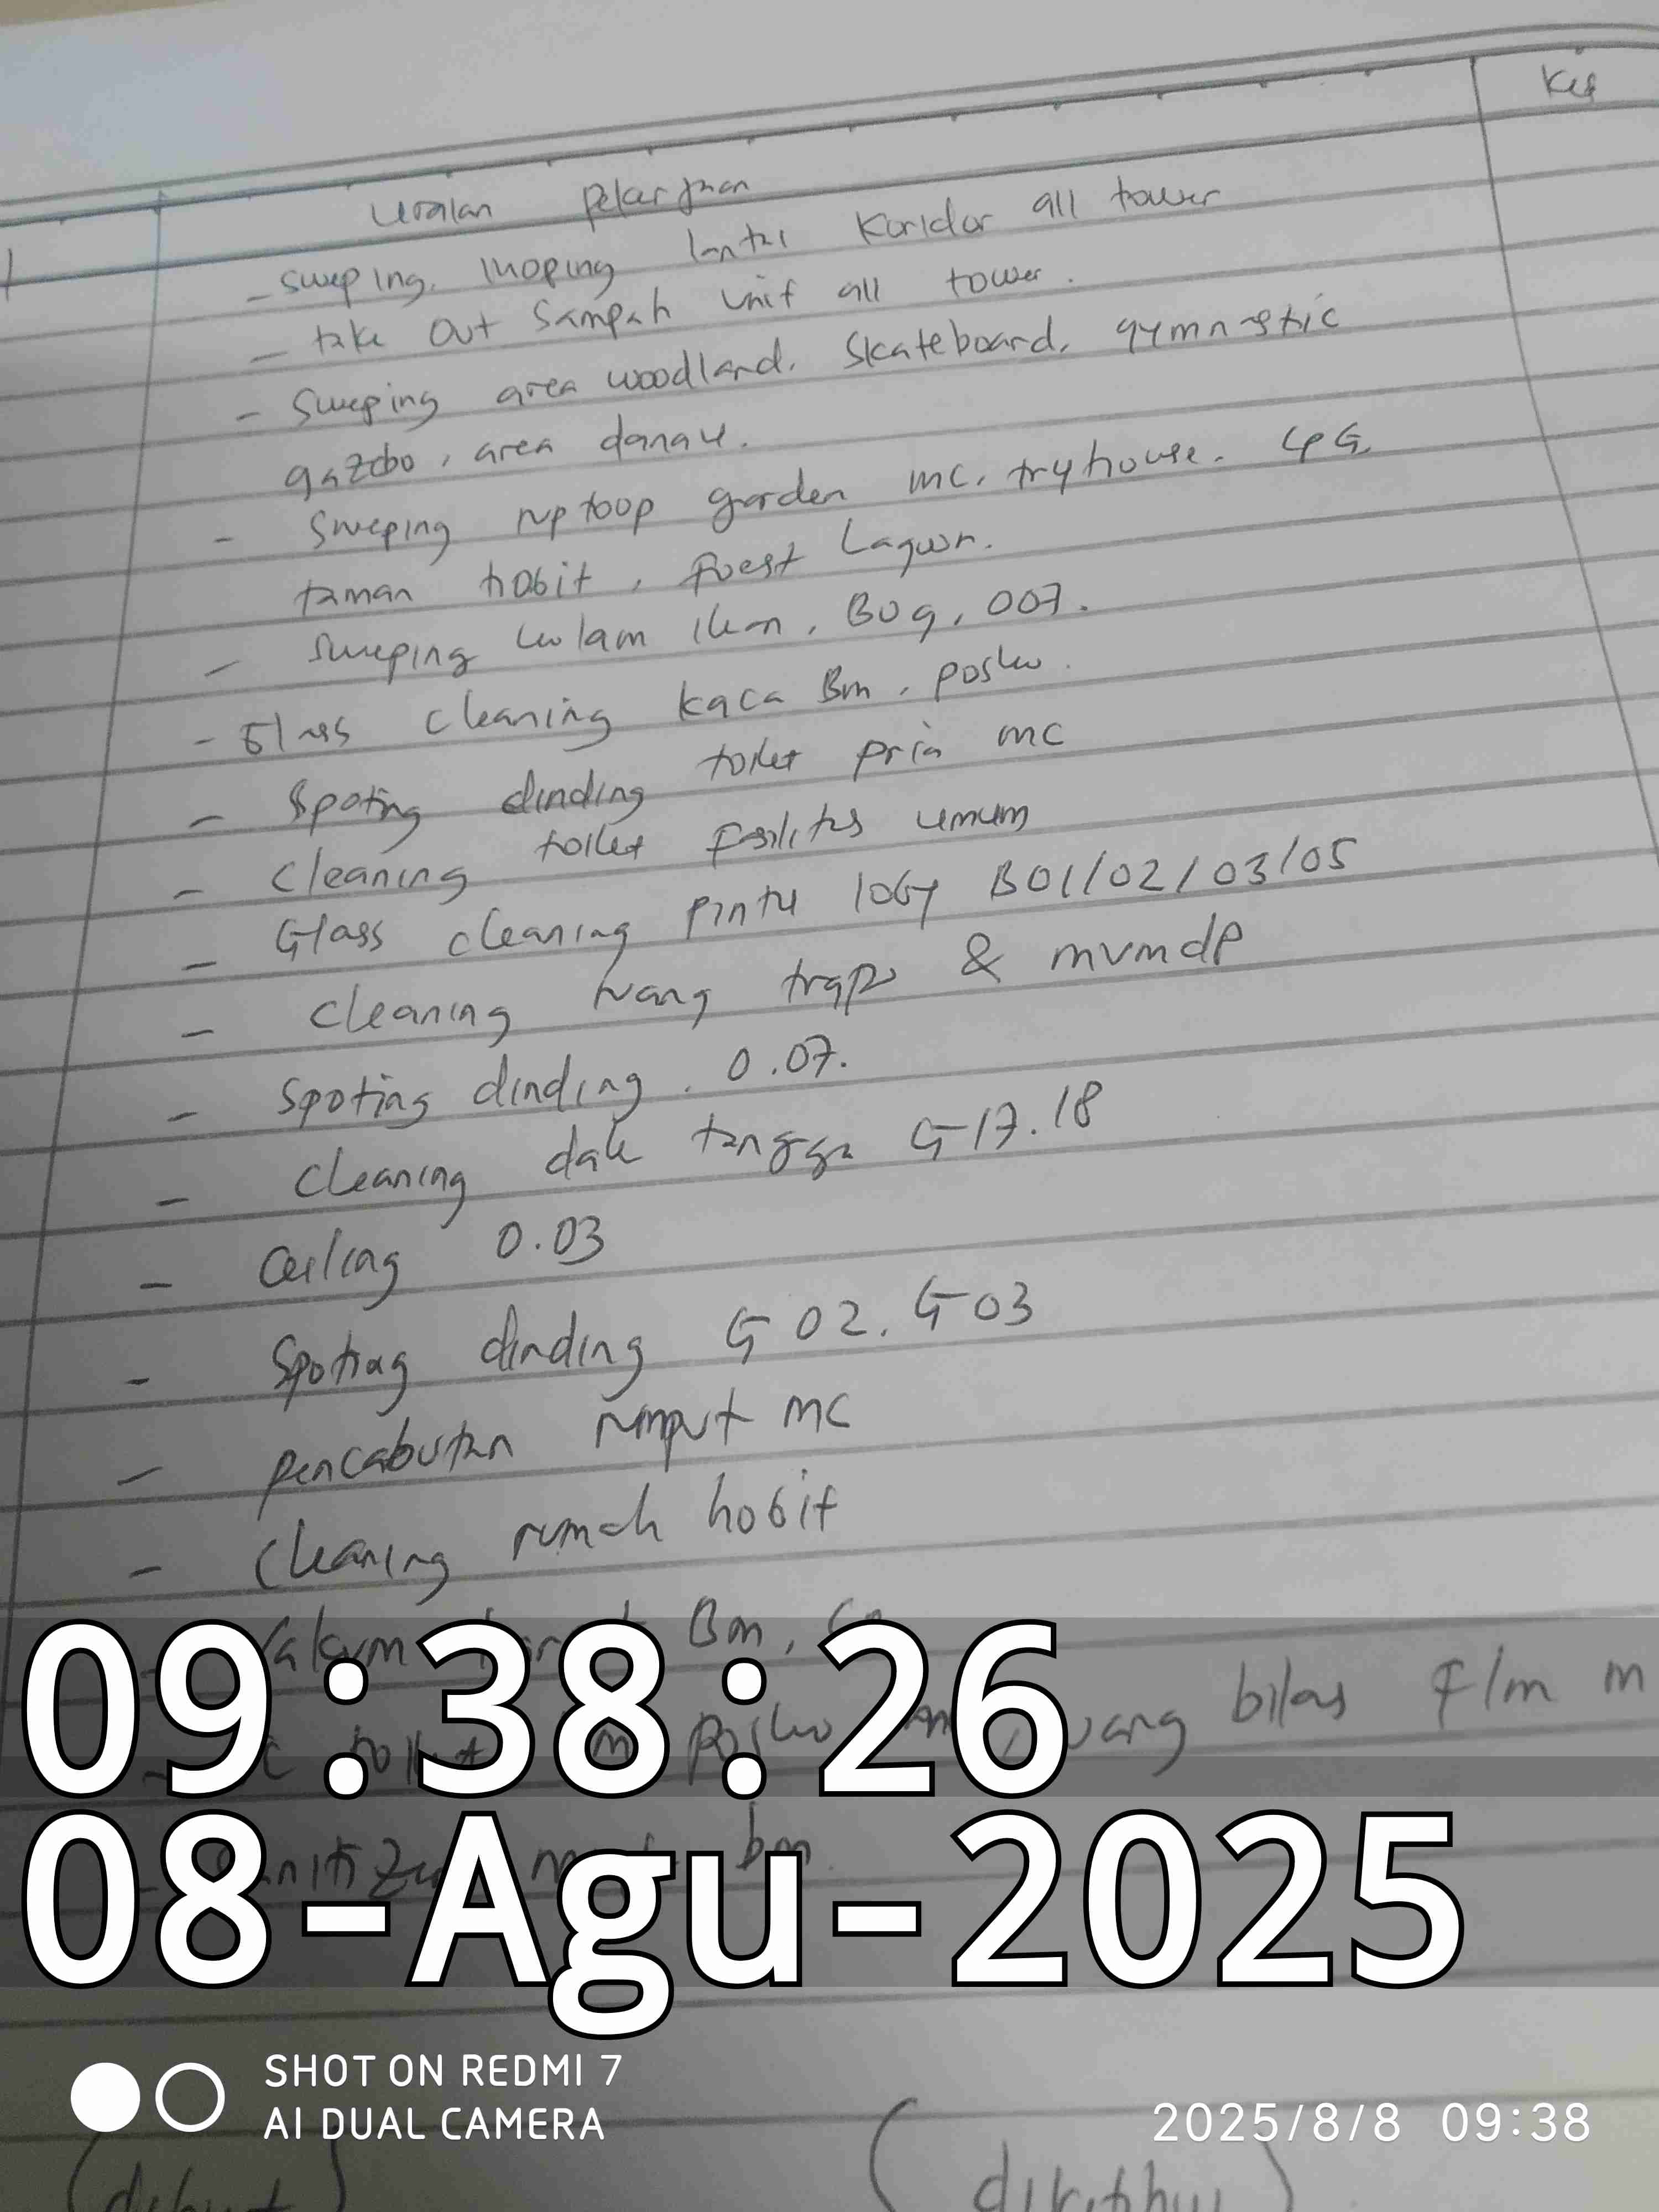 Ket
Uraian Pekerjaan
- Sweping, moping lantai Koridor all tower
- take out Sampah unit all tower.
- Sweping area woodland, Skateboard, gymnastic
gazebo, area danau.
- Sweping garden mc, tryhouse. LPG,
taman hobit, Forest Lagoon.
- Sweping kolam ikan, B09, 007.
- Glass cleaning kaca Bm, posko.
- Spoting dinding toilet pria mc
- Cleaning toilet fasilitas umum
- Glass cleaning pintu loby B01/02/03/05
- cleaning ruang trafo & mvmdp
- Spoting dinding. 0.07.
- Cleaning dak tangga G17.18
- Ceiling 0.03
- Spoting dinding G02. G03
- pencabutan rumput mc
- Cleaning rumah hobit
- Vakum Bm,
- toilet posko ruang bilas
- bm.
09:38:26
08-Agu-2025
SHOT ON REDMI 7
AI DUAL CAMERA
2025/8/8 09:38
(dibuat) (diketahui)